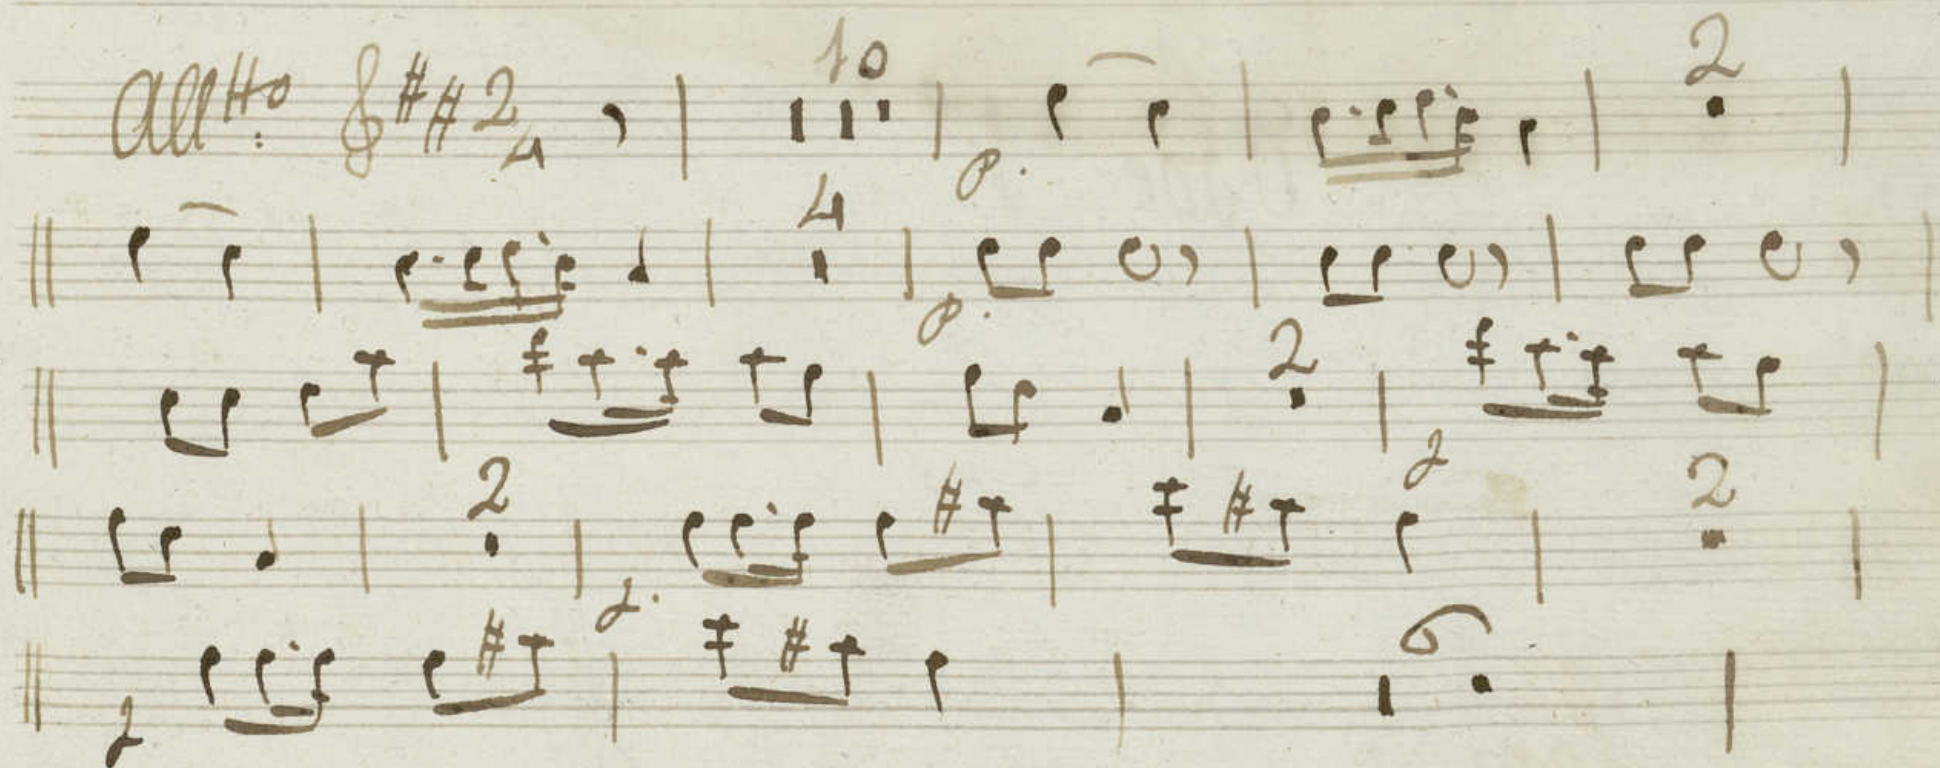 Alltto: 2/4 10 p. 2
4 p.
2 f
2 f. 2
f 6